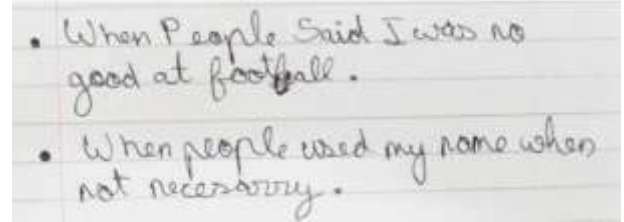 • When People Said I was no
good at football.
• When people used my name when
not necesarry.